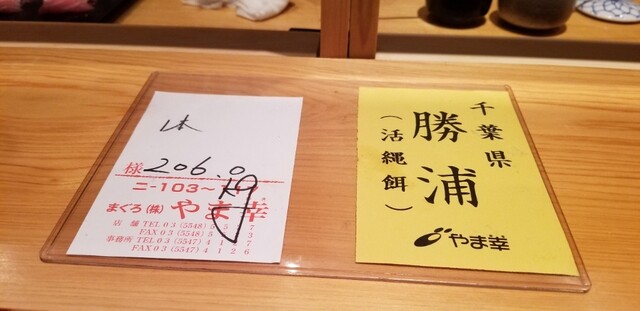 様 206.0
ニ-103~
まぐろ(株) やま幸
店舗 TEL 03 (5548)
FAX 03 (5548)
事務所 TEL 03 (5547) 4
FAX 03 (5547) 4126
千葉県
勝浦
(活縄餌)
やま幸